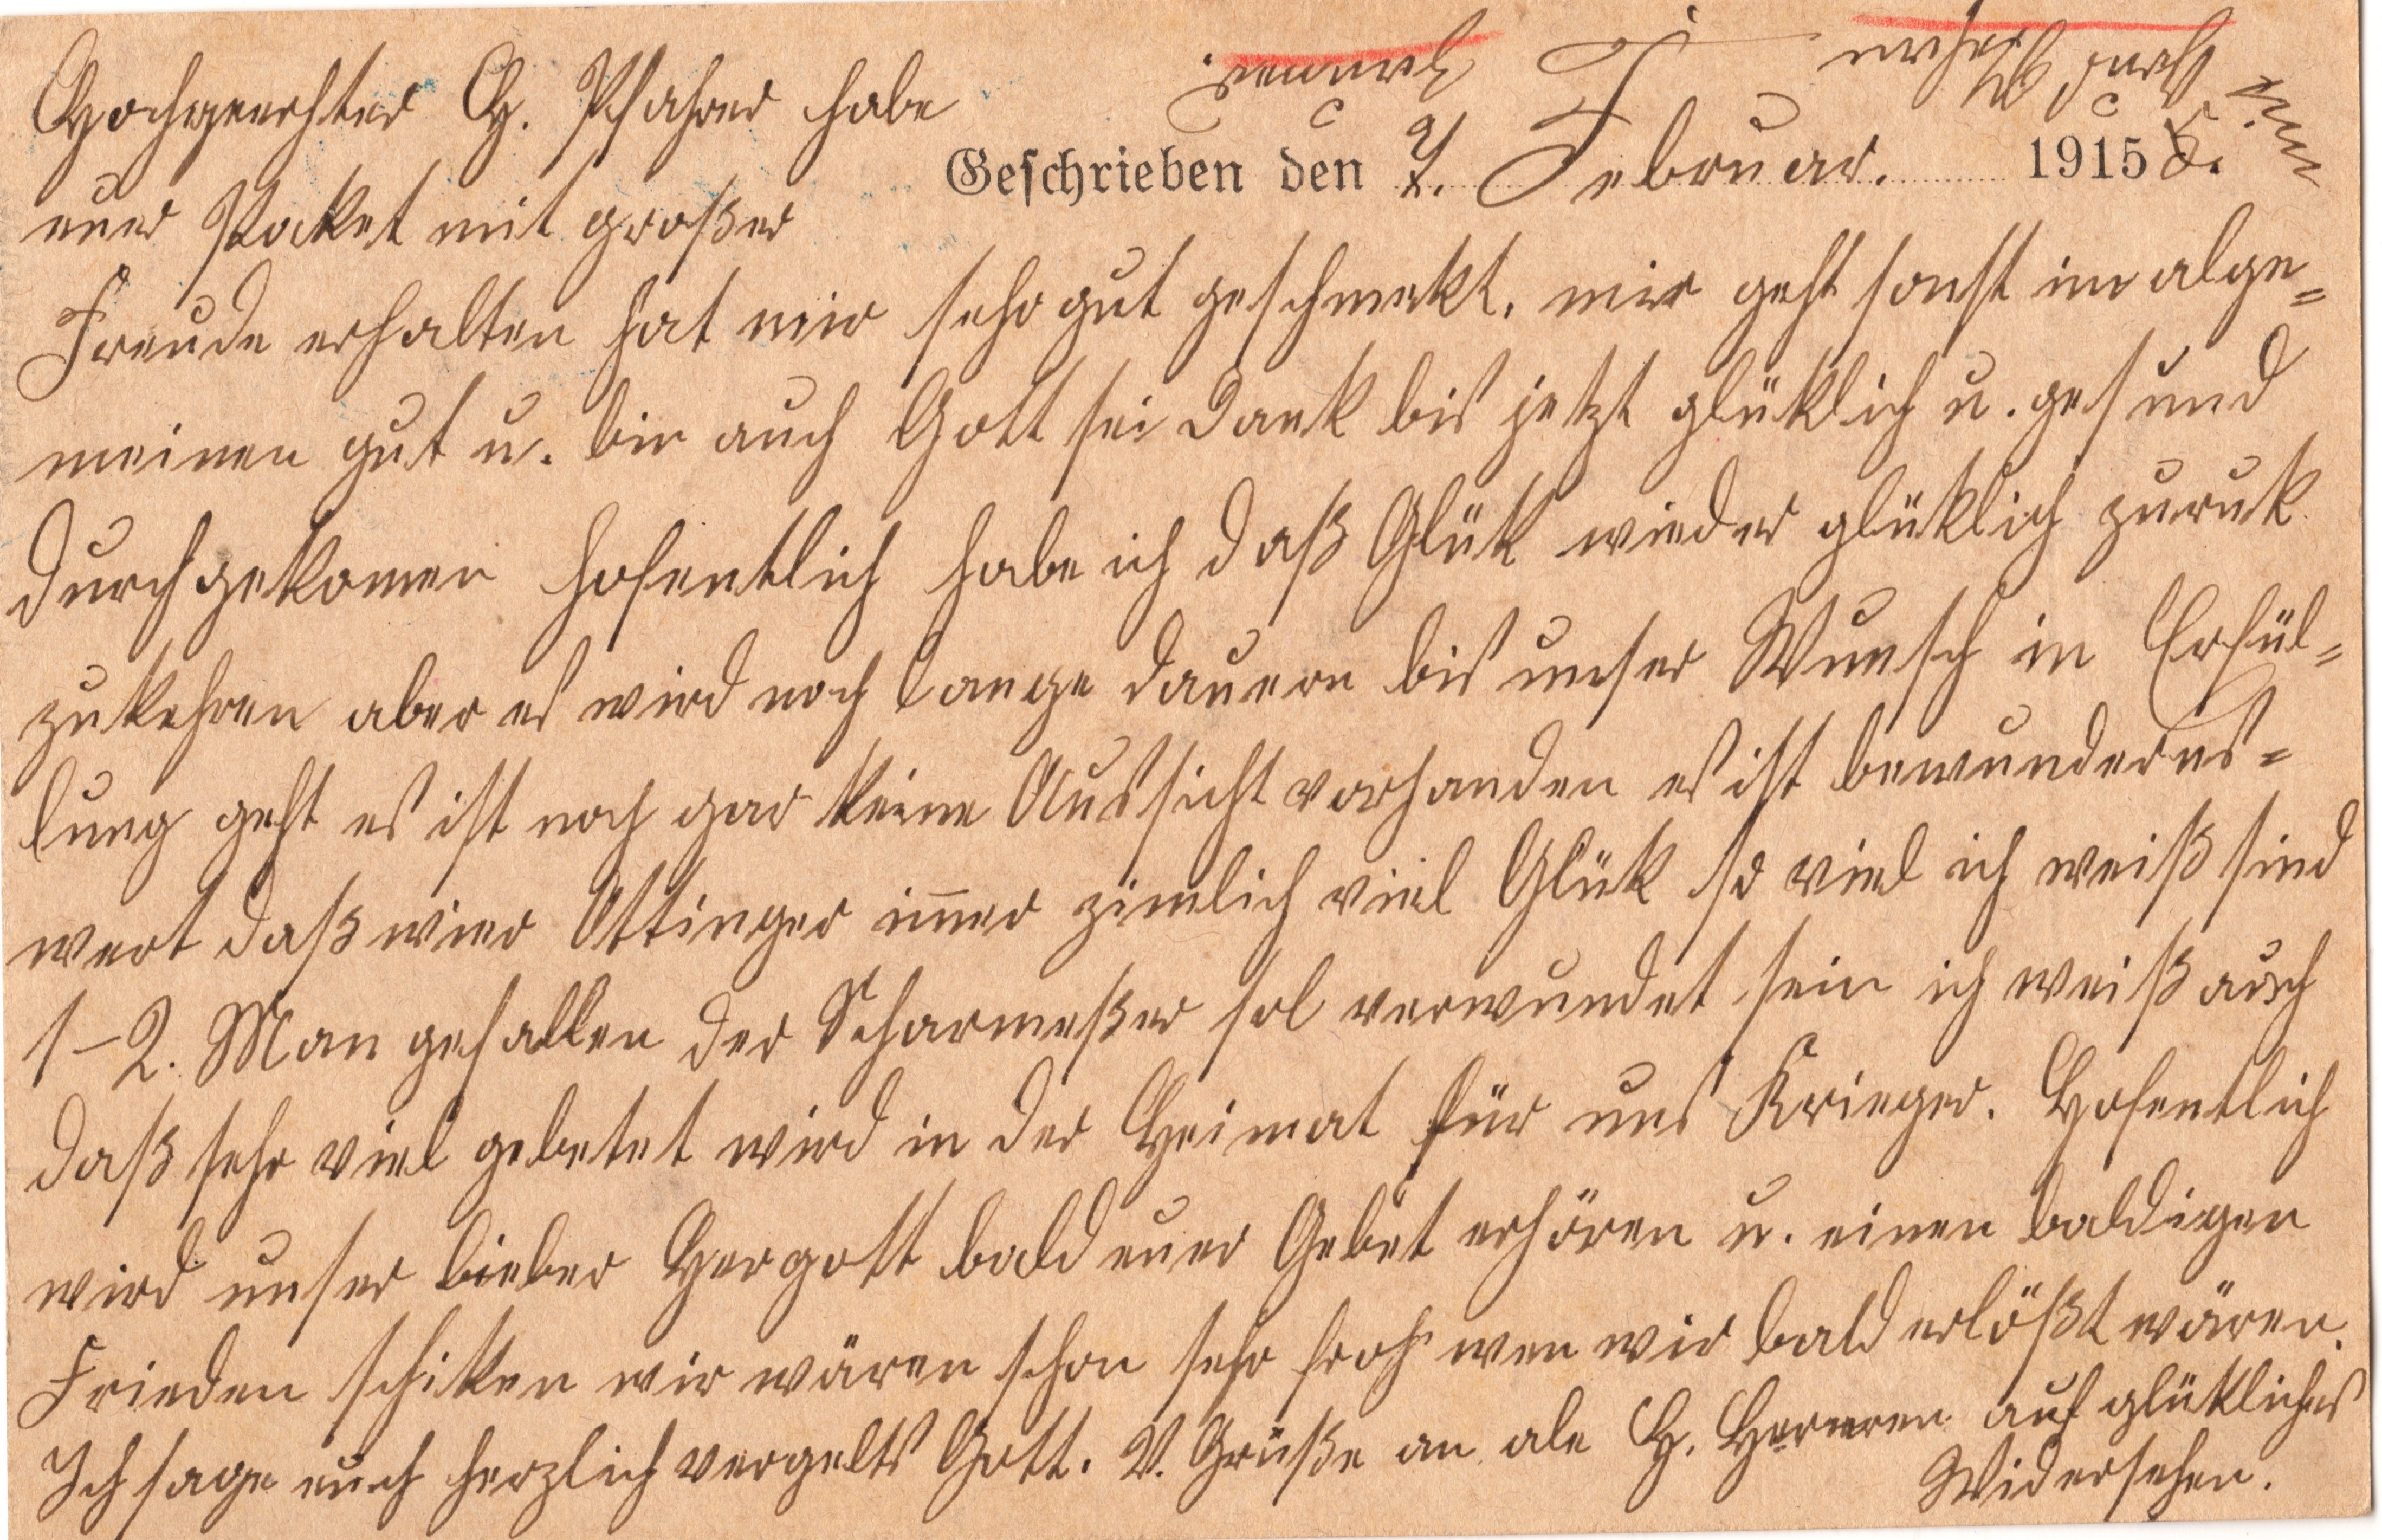 Hochgeerhter H. Pfahrer habe
Geschrieben den 7. Februar. 1915
euer Paket mit großer
Freude erhalten hat mir sehr gut geschmekt. mir geht sonst im alge=
meinen gut u. bin auch Gott sei Dank bis jetzt glüklich u. gesund
durchgekomen hofentlich habe ich daß Glük wieder glüklich zuruk
zukehren aber es wird noch lange dauern bis unser Wunsch in Erfül=
lung geht es ist noch gar keine Aussicht vorhanden es ist bewunderns=
wert daß wier Ottinger immer zimlich viel Glük so viel ich weiß sind
1-2. Man gefallen der Scharmeßer sol verwundet sein ich weiß auch
daß sehr viel gebetet wird in der Heimat für uns Krieger. Hofentlich
wird unser lieber Hergott bald euer Gebet erhören u. einen baldigen
Frieden schiken wir wären schon sehr froh wen wir bald erlößt wären.
Ich sage euch herzlich vergelts Gott. V. Grüße an ale H. Herrren auf glükliches
Widersehen.